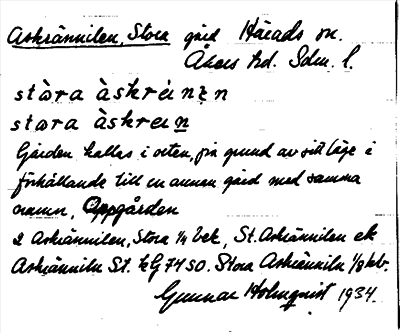 Askrännilen, Stora gård Härads sn.
Åkers hd. Sdm. l.
stòra àskrèinən
stora àskrein
Gården kallas i orten, på grund av sitt läge i
förhållande till en annan gård med samma
namn, Oppgården
2 Askrännilen, Stora 1/4 bek, St. Askrännilen ek
Askränniln St. kG 7450. Stora Askränniln 1/8 kb.
Gunnar Holmquist 1934.